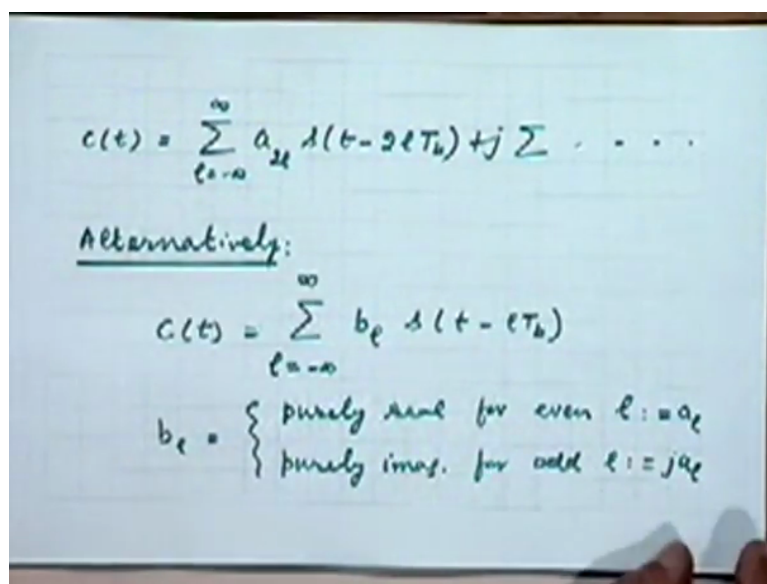 c(t) = ∑_{l=-∞}^{∞} a_{2l} s(t-2lT_b) + j ∑ . . . .
Alternatively:
c(t) = ∑_{l=-∞}^{∞} b_l s(t-lT_b)
b_l = { purely real for even l : = a_l
purely imag. for odd l : = ja_l